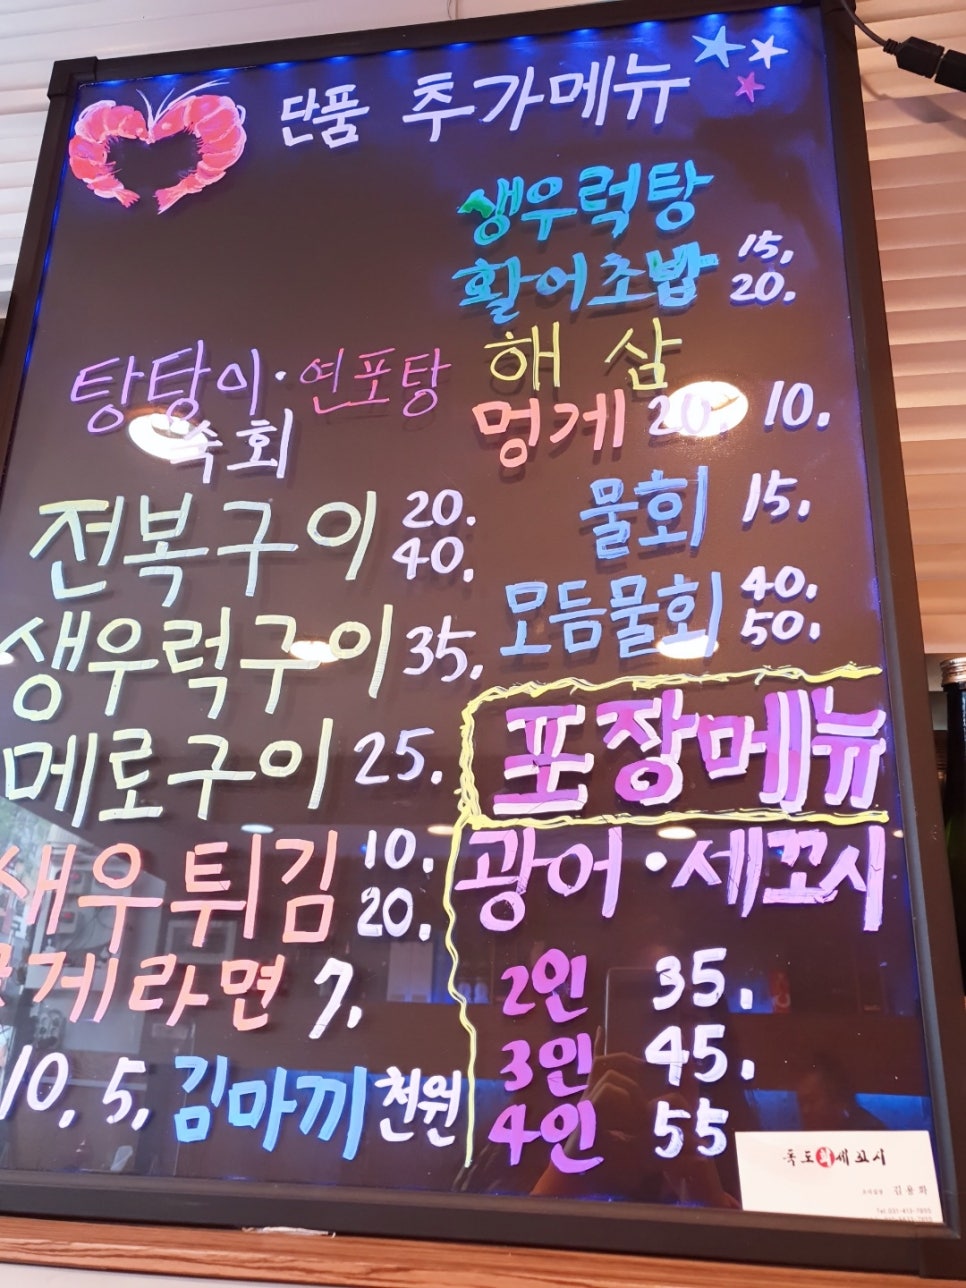 단품 추가메뉴
생우럭탕
활어초밥 15, 20.
해 삼
멍게 20. 10.
물회 15,
모듬물회 40, 50.
탕탕이·연포탕
숙회
전복구이 20. 40.
생우럭구이 35,
메로구이 25.
새우 튀김 10. 20.
꽃게라면 7,
10, 5, 김마끼 천원
포장메뉴
광어·세꼬시
2인 35,
3인 45.
4인 55
독도회세꼬시
김용화